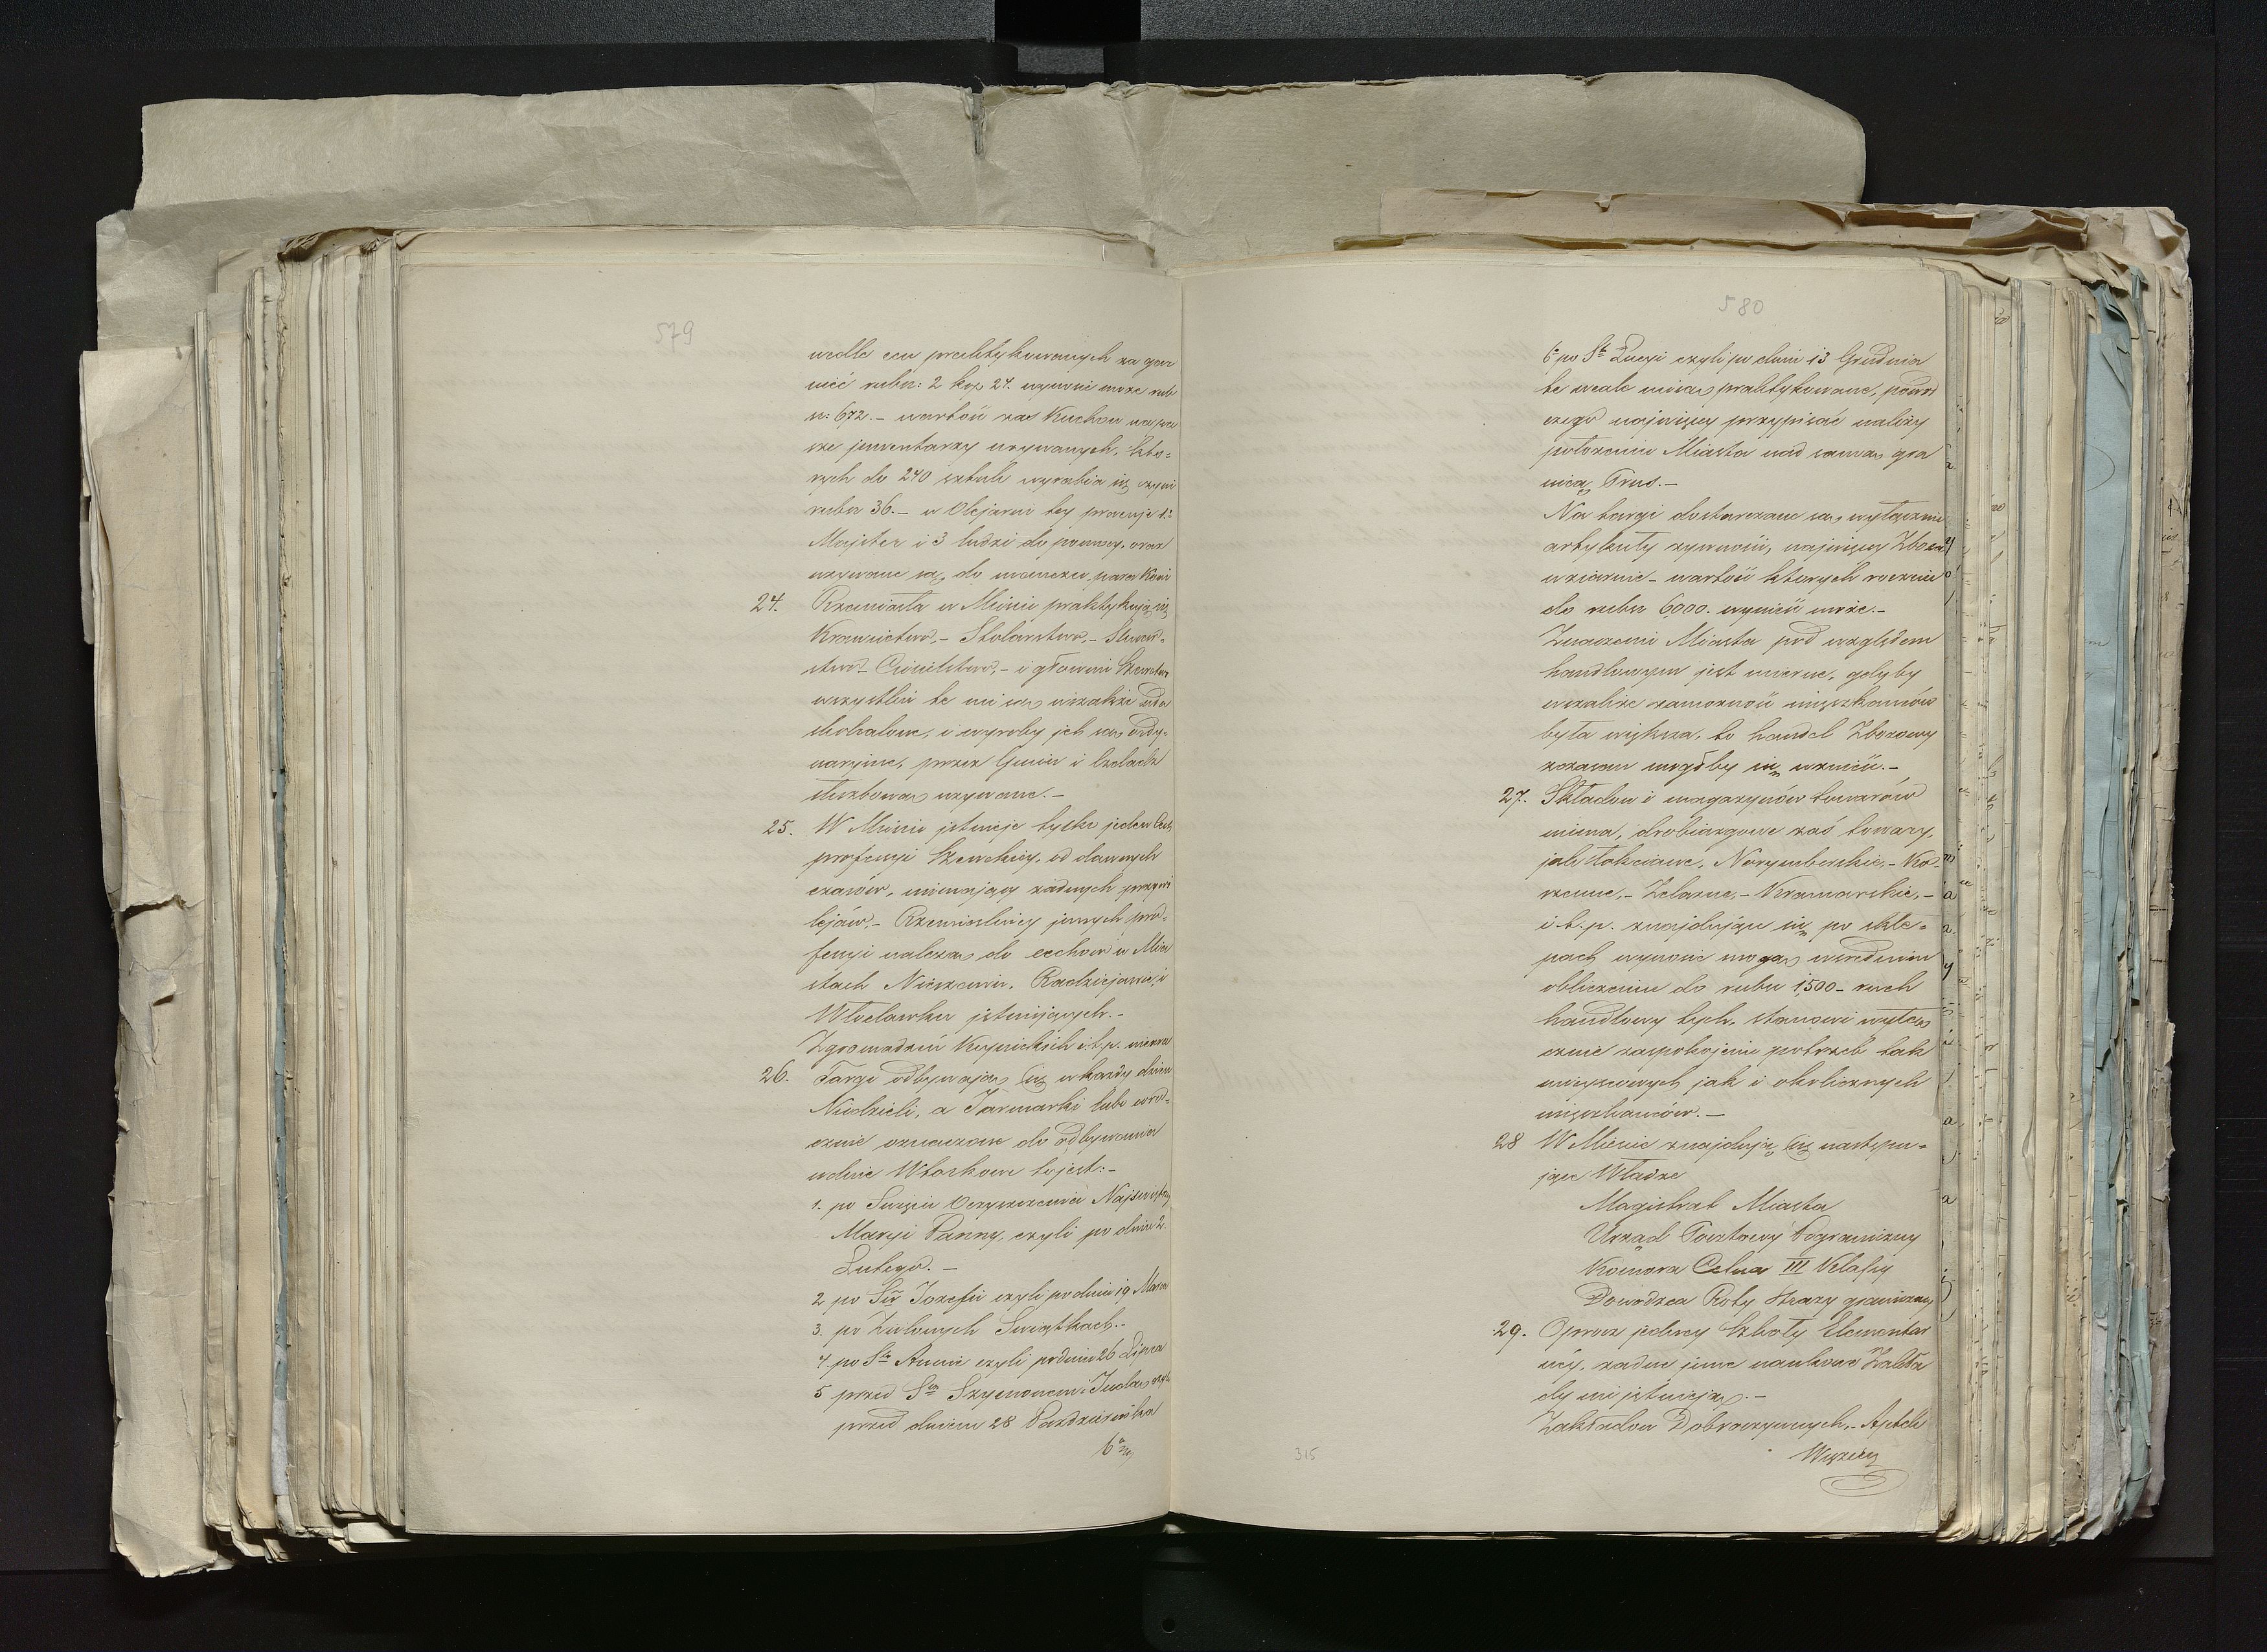 579
wedle cen praktykowanych za gar
niec rubr: 2 kop 24. wynosić może rub
r: 672.– wartość zaś Kuchów na pa
sze jnwentarzy używanych, któ=
rych do 240 sztuk wyrabia się czyni
rubr 36.– w Olejarni tey pracuje 1:
Majster i 3 ludzi do pomocy, oraz
używane są do maneżu para Koni
24. Rzemiosła w Mieście praktykują się
Krawiectwo,– Stolarstwo,–
stwo– Ciesielstwo,– i głownie Szewctwo
wszystkie te nie są wszakże udo
skonalone, i wyroby jch są ordy=
naryjne, przez Gmin i Czeladź
służbową używane.–
25. W Mieście jstnieje tylko jeden Cech
profesyi Szewckiey, od dawnych
czasów, niemający żadnych przywi
lejów.– Rzemieślnicy jnnych pro=
fesyi należą do cechow w Mia
stach Nieszawie, Radziejowie, i
Włocławku jstniejących.–
Zgromadzeń Kupieckich i.t.p. niema
26. Targi odbywają się w każdy dzień
Niedzieli, a Jarmarki lubo
cznie oznaczone do odbywania
w dnie Wtorkowe tojest:–
1. po Święcie Oczyszczenia Najświętszy
Maryi Panny, czyli po dniu 2.
Lutego.–
2 po Sw Jozefie czyli po dniu 19 Marca
3. po Zielonych Swiątkach.–
4. po Ste Annie czyli po dniu 26 Lipca
5 przed Sm Szymonem i Judą czyli
przed dniem 28 Października
6.
580
6 po Ste Lucyi czyli po dniu 13 Grudnia
te wcale nie są praktykowane, powod
czego najwięcy przypisać należy
położeniu Miasta nad samą gra
nicą Prus.–
Na targi dostarczane są wyłącznie
artykuły żywności, najwięcey Zboża
w ziarnie– wartość których rocznie
do rubr 6000. wynieść może.–
Znaczenie Miasta pod względem
handlowym jest mierne, gdyby
wszakże zamożność mieszkańców
była większa, to handel Zbożowy
zczasem mogłby się wznieść.–
27. Składow i magazynów towarów
niema, drobiazgowe zaś towary,
jak łokciowe, Norymberskie,– Ko=
rzenne,– Żelazne,– Kramarskie,–
i.t.p. znajdujące się po skle=
pach wynosić mogą w średnim
obliczeniu do rubr 1500– ruch
handlowy tych, stanowi wyłą
cznie zaspokojenie potrzeb tak
mieyscowych jak i okolicznych
mieszkańców.–
28 W Mieście znajdują się następu=
jące Władze
Magistrat Miasta
Urząd Pocztowy Pograniczny
Komora Celna III Klassy
Dowodzca Roty Straży graniczney
29. Oprocz jedney Szkoły Elementar
ney, żadne jnne naukowe Zakła
dy nie jstnieją.–
Zakładow Dobroczynnych,– Aptek
315